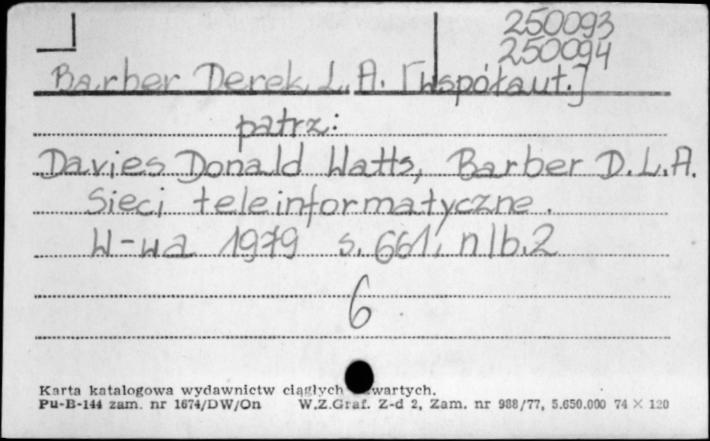 250093
250094
Barber Derek L. A. [Współaut.]
patrz:
Davies Donald Watts, Barber D.L.A.
Sieci teleinformatyczne.
W-wa 1979 s. 661, nlb. 2
6
Karta katalogowa wydawnictw ciągłych wartych.
Pu-B-144 zam. nr 1674/DW/On W.Z.Graf. Z-d 2, Zam. nr 988/77, 5.650.000 74 × 120